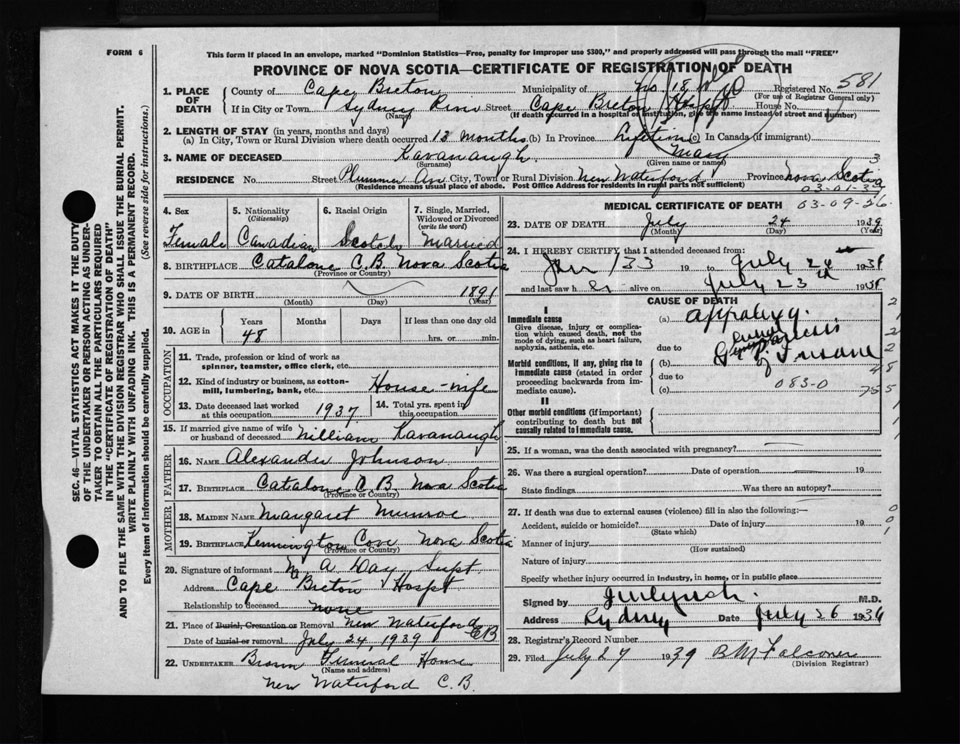 FORM 6
This form if placed in an envelope, marked "Dominion Statistics—Free, penalty for improper use $300," and properly addressed will pass through the mail "FREE"
PROVINCE OF NOVA SCOTIA—CERTIFICATE OF REGISTRATION OF DEATH
SEC. 46—VITAL STATISTICS ACT MAKES IT THE DUTY
OF THE UNDERTAKER OR PERSON ACTING AS UNDER-
TAKER TO OBTAIN ALL THE PARTICULARS REQUIRED
IN THE "CERTIFICATE OF REGISTRATION OF DEATH"
AND TO FILE THE SAME WITH THE DIVISION REGISTRAR WHO SHALL ISSUE THE BURIAL PERMIT.
WRITE PLAINLY WITH UNFADING INK. THIS IS A PERMANENT RECORD.
Every item of information should be carefully supplied. (See reverse side for instructions.)
1. PLACE OF DEATH County of Cape Breton Municipality of No. 18 Registered No. 581
(For use of Registrar General only)
If in City or Town Sydney River Street Cape Breton Hospt House No.
(Name) (If death occurred in a hospital or institution, give the name instead of street and number)
2. LENGTH OF STAY (in years, months and days)
(a) In City, Town or Rural Division where death occurred 13 months (b) In Province Lifetime (c) In Canada (if immigrant)
3. NAME OF DECEASED Kavanaugh Mary
(Surname) (Given name or names)
3
RESIDENCE No. Street Plummer Av City, Town or Rural Division New Waterford Province Nova Scotia
(Residence means usual place of abode. Post Office Address for residents in rural parts not sufficient)
03-01-37
03-09-26
4. Sex Female
5. Nationality (Citizenship) Canadian
6. Racial Origin Scotch
7. Single, Married, Widowed or Divorced (write the word) Married
8. BIRTHPLACE Catalone C.B. Nova Scotia
(Province or Country)
9. DATE OF BIRTH 1891
(Month) (Day) (Year)
10. AGE in Years Months Days If less than one day
48 hrs. or min.
OCCUPATION
11. Trade, profession or kind of work as spinner, teamster, office clerk, etc.
12. Kind of industry or business, as cotton-mill, lumbering, bank, etc. House-wife
13. Date deceased last worked at this occupation 1937 14. Total yrs. spent in this occupation
15. If married give name of wife or husband of deceased William Kavanaugh
FATHER
16. NAME Alexander Johnson
17. BIRTHPLACE Catalone C.B. Nova Scotia
(Province or Country)
MOTHER
18. MAIDEN NAME Margaret Munroe
19. BIRTHPLACE Kennington Cove Nova Scotia
(Province or Country)
20. Signature of informant M A Day Supt
Address Cape Breton Hospt
Relationship to deceased none
21. Place of Burial, Cremation or Removal New Waterford CB
Date of burial or removal July 24, 1939
22. UNDERTAKER Brown Funeral Home
(Name and address)
New Waterford C.B.
MEDICAL CERTIFICATE OF DEATH
23. DATE OF DEATH July 24 1939
(Month) (Day) (Year)
24. I HEREBY CERTIFY that I attended deceased from:
Jan 133 19 to July 24 193
and last saw h er alive on July 23 193
CAUSE OF DEATH
Immediate cause
Give disease, injury or complication which caused death, not the mode of dying, such as heart failure, asphyxia, asthenia, etc.
(a) appoplexy
due to
Morbid conditions, if any, giving rise to immediate cause (stated in order proceeding backwards from immediate cause).
(b) General Paresis of Insane
due to 083-0
(c)
II
Other morbid conditions (if important) contributing to death but not causally related to immediate cause.
25. If a woman, was the death associated with pregnancy?
26. Was there a surgical operation? Date of operation 19
State findings Was there an autopsy?
27. If death was due to external causes (violence) fill in also the following:—
Accident, suicide or homicide? Date of injury 19
(State which)
Manner of injury
(How sustained)
Nature of injury
Specify whether injury occurred in industry, in home, or in public place
Signed by M.D.
Address Sydney Date July 26 193
28. Registrar's Record Number
29. Filed July 27 1939 B M Falconer
(Division Registrar)